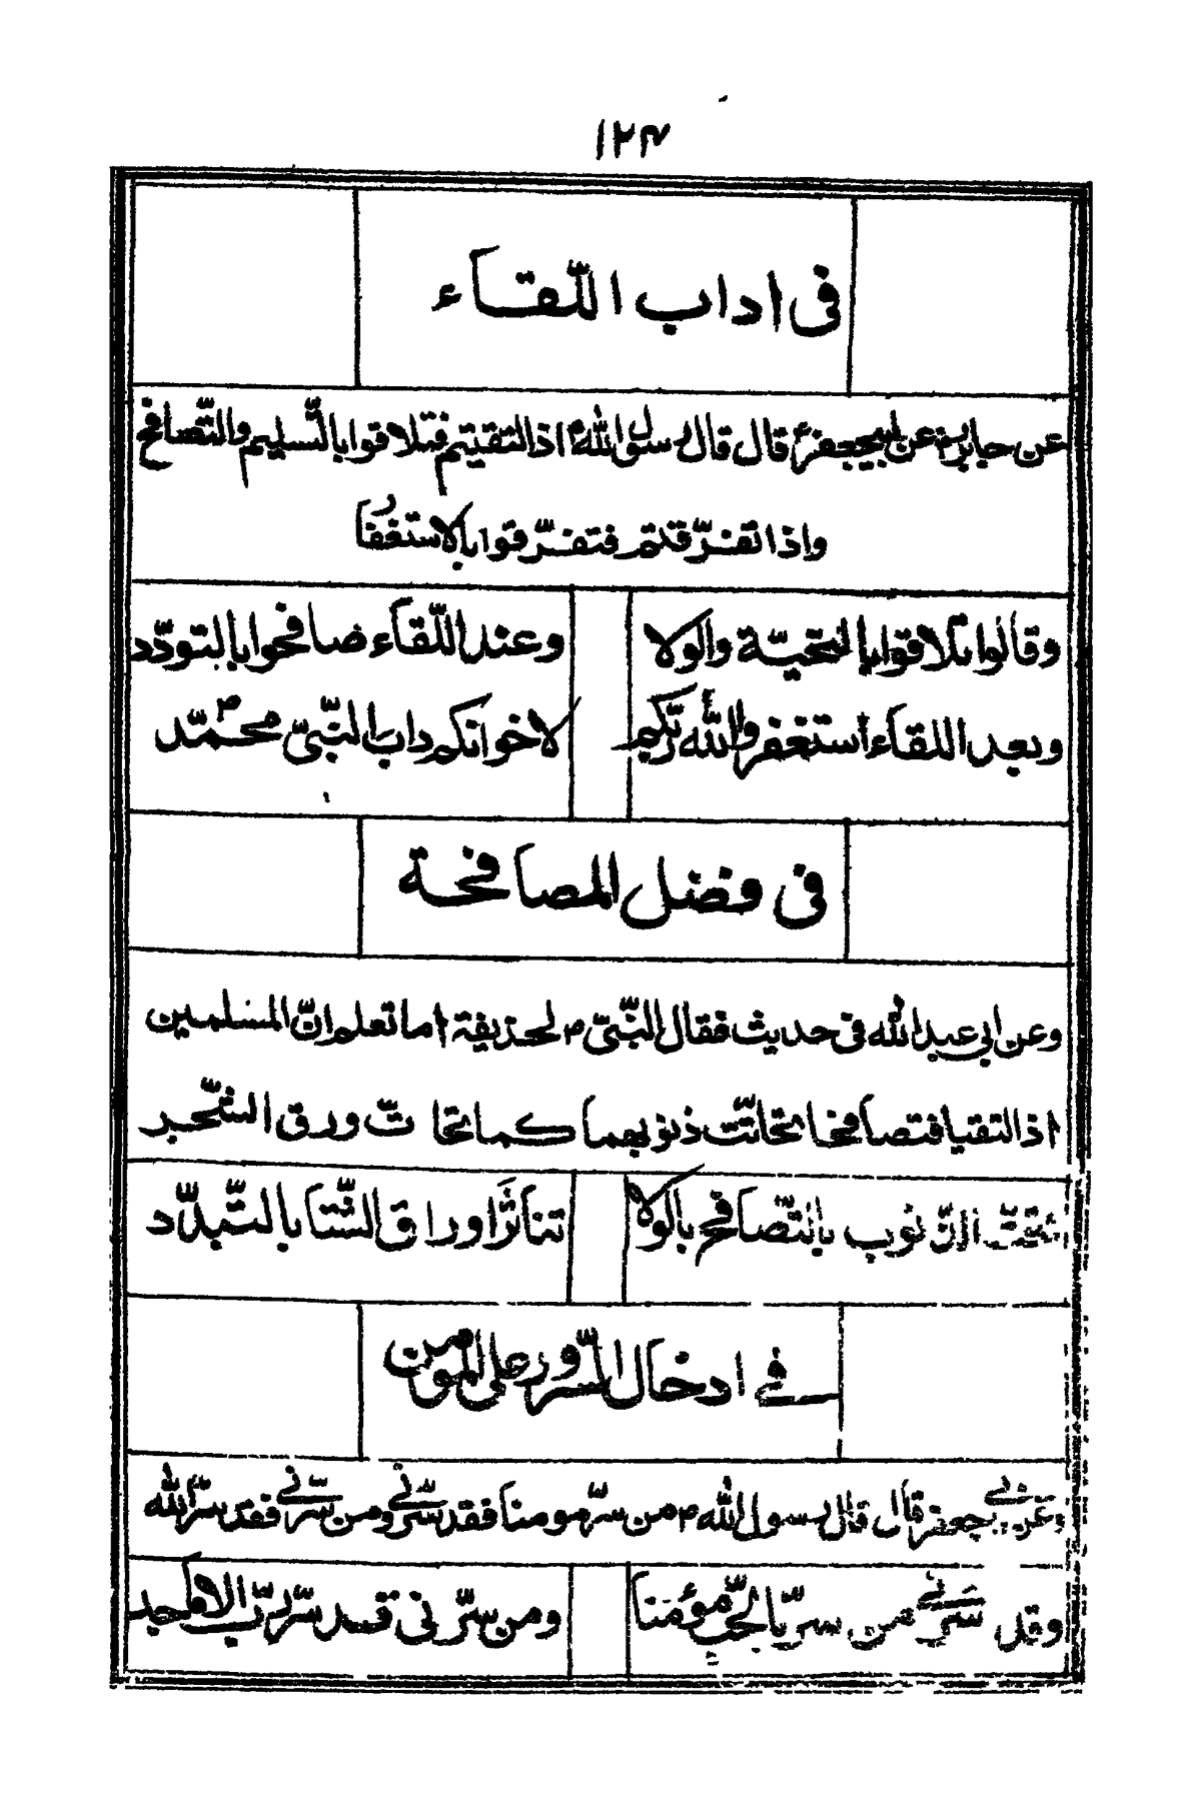 ١٢٣
فى اداب اللّقاء
عن جابر عن ابيجعفرؑ قال قال رسول اللهؐ اذا التقيتم فتلاقوا بالتّسليم والتّصافح
واذا تفرّقتم فتفرّقوا بالاستغفار
وقالوا تلاقوا بالتحيّة والولا
وعند اللّقاء صافحوا بالتودّد
وبعد اللقاء استغفروا الله ربّكم
لاخوانكم داب النّبىّ محمّد
فى فضل المصافحة
وعن ابي عبد الله فى حديث فقال النّبىّ ص لحذيفة اما تعلم انّ المسلمين
اذا التقيا فتصافحا تحاتّت ذنوبهما كما تحاتّ ورق الشّجر
تحتّ الذّنوب بالتّصافح بالولا
تناثر اوراق الشّتا بالتّبدّد
في ادخال السّرور على المومن
وعن ابي جعفر قال قال رسول الله ص من سرّ مومنا فقد سرّني ومن سرّني فقد سرّ الله
وقد سرّني من سرّ بالحبّ مؤمنا
ومن سرّنى قد سرّ ربّى الاماجد